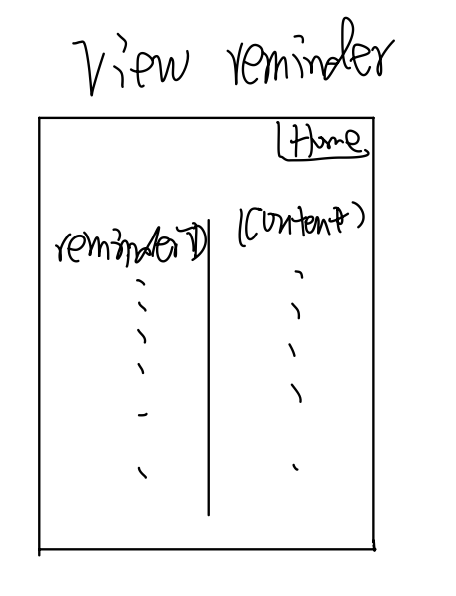 View reminder
Home
reminderID (content)